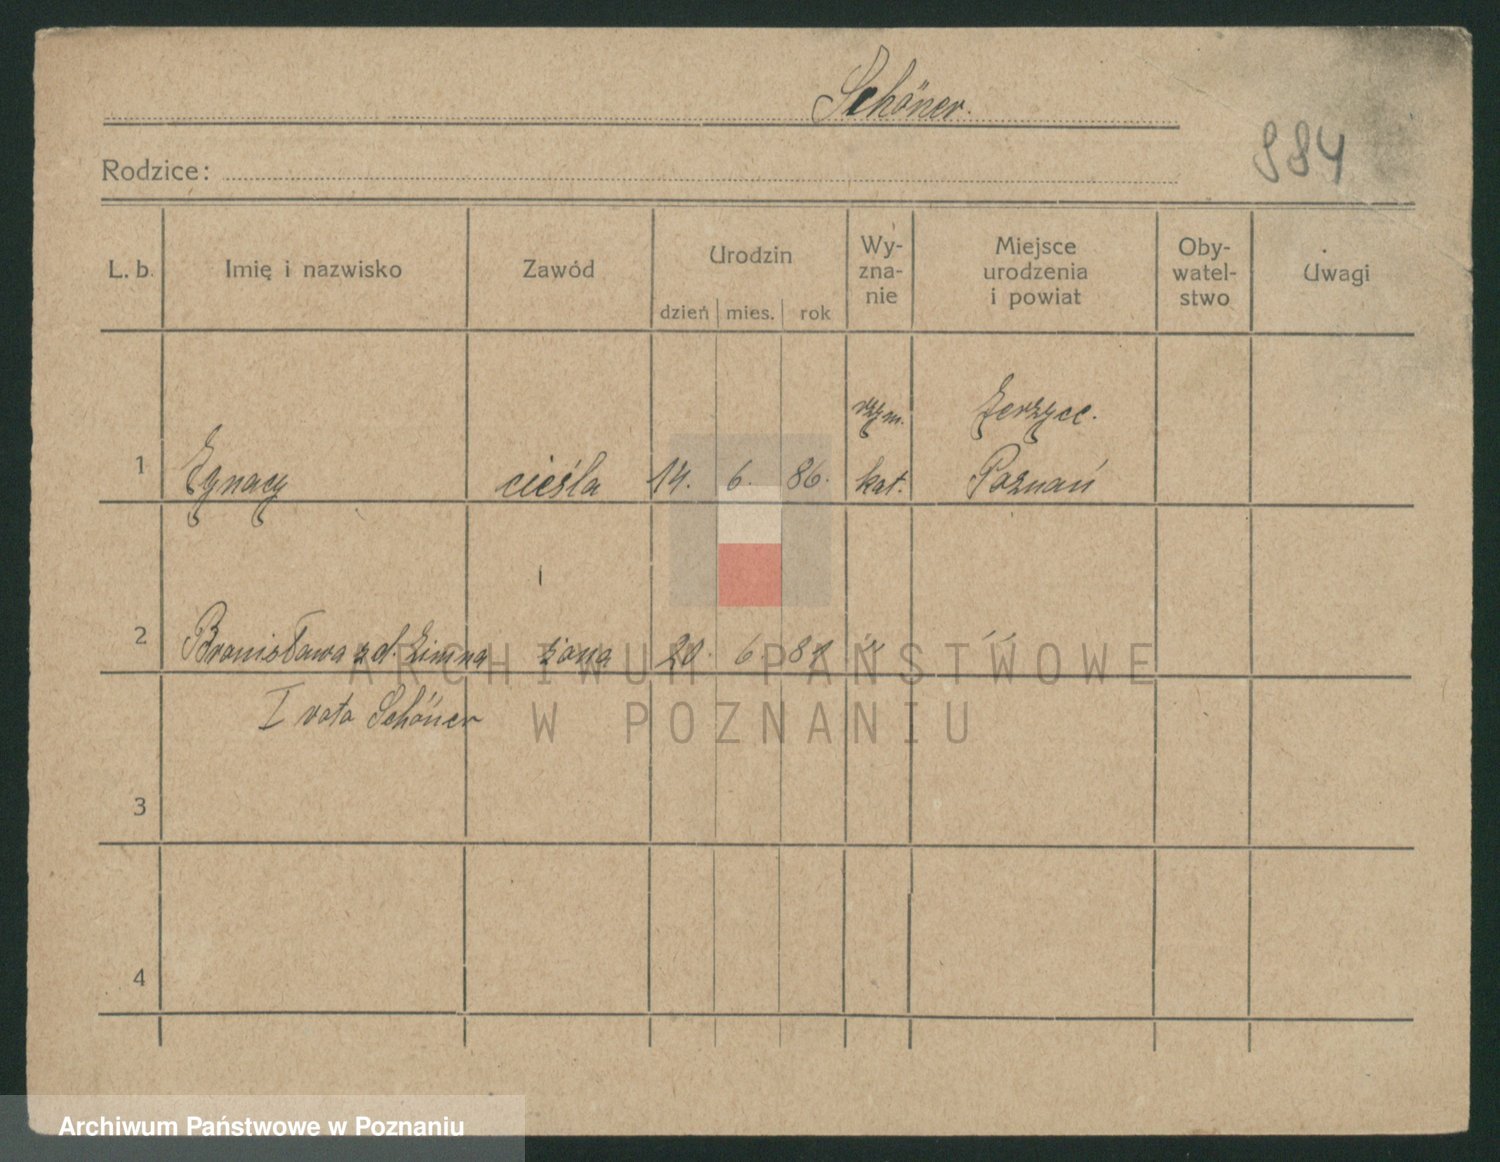 Schöner.
984
Rodzice:
L. b. Imię i nazwisko Zawód Urodzin dzień mies. rok Wy-zna-nie Miejsce urodzenia i powiat Oby-watel-stwo Uwagi
rzym. Jerzyce.
1 Ignacy cieśla 14. 6. 86. kat. Poznań
2 Bronisława z d. Zimna żona 20. 6. 87 " " "
I voto Schöner
3
4
ARCHIWUM PAŃSTWOWE
W POZNANIU
Archiwum Państwowe w Poznaniu